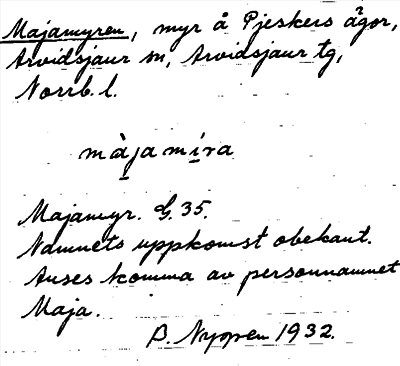 Majamyren, myr å Pjeskers ägor,
Arvidsjaur sn, Arvidsjaur tg,
Norrb. l.
màjamira
Majamyr. G. 35.
Namnets uppkomst obekant.
Anses komma av personnamnet
Maja.
B. Nyopen 1932.